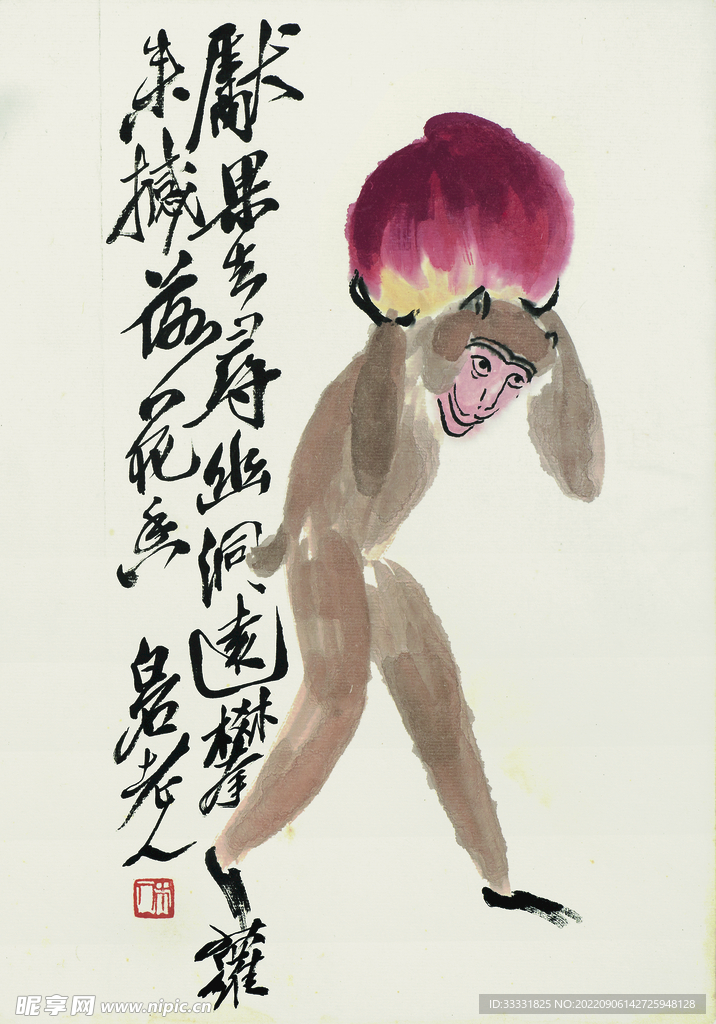 獻果去尋幽洞遠攀蘿
来撼落花香
白石老人
木人
昵享网 www.nipic.cn
ID:33331825 NO:20220906142725948128